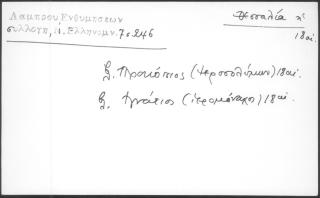 Λάμπρου Ἐνθυμήσεων
συλλογή, Ν. Ἑλληνομν. 7. 246
Θεσσαλία
18 αἰ.
Προκόπιος (Ἱεροσολύμων) 18 αἰ.
Ἰγνάτιος (ἱερομόναχος) 18 αἰ.